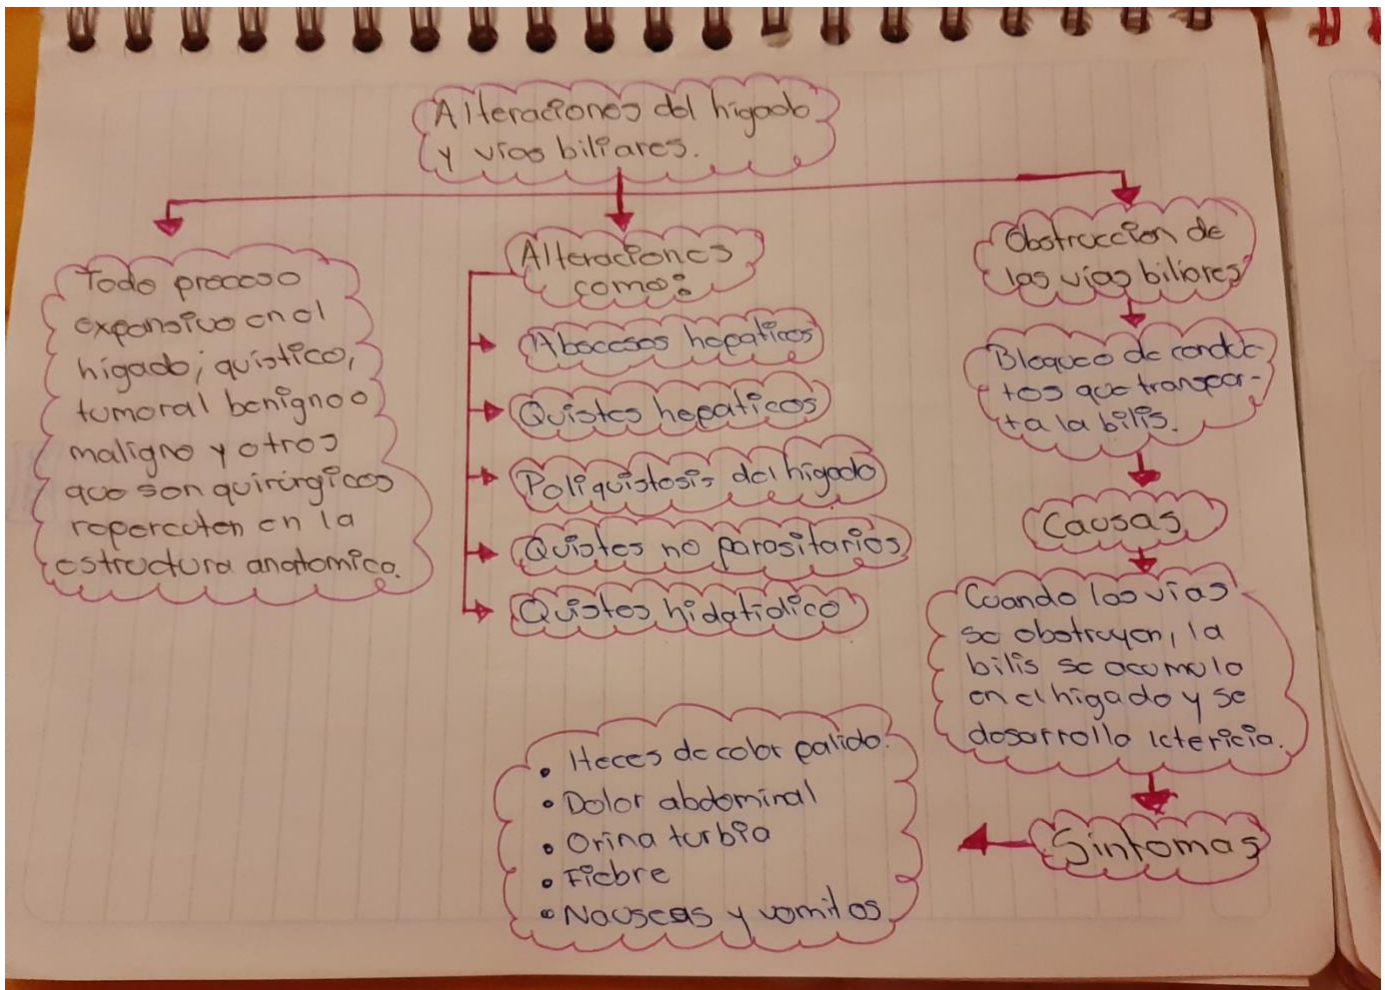 Alteraciones del hígado
y vías biliares.
Todo proceso
expansivo en el
hígado; quístico,
tumoral benigno o
maligno y otros
que son quirúrgicos
repercuten en la
estructura anatomica.
Alteraciones
como:
Abscesos hepaticos
Quistes hepaticos
Poliquistosis del hígado
Quistes no parasitarios
Quistes hidatidico
Obstruccion de
las vías biliares
Bloqueo de conduc-
tos que transpor-
ta la bilis.
Causas
Cuando las vías
se obstruyen, la
bilis se acumula
en el hígado y se
desarrolla ictericia.
Síntomas
• Heces de color palido.
• Dolor abdominal
• Orina turbia
• Fiebre
• Nauseas y vomitos